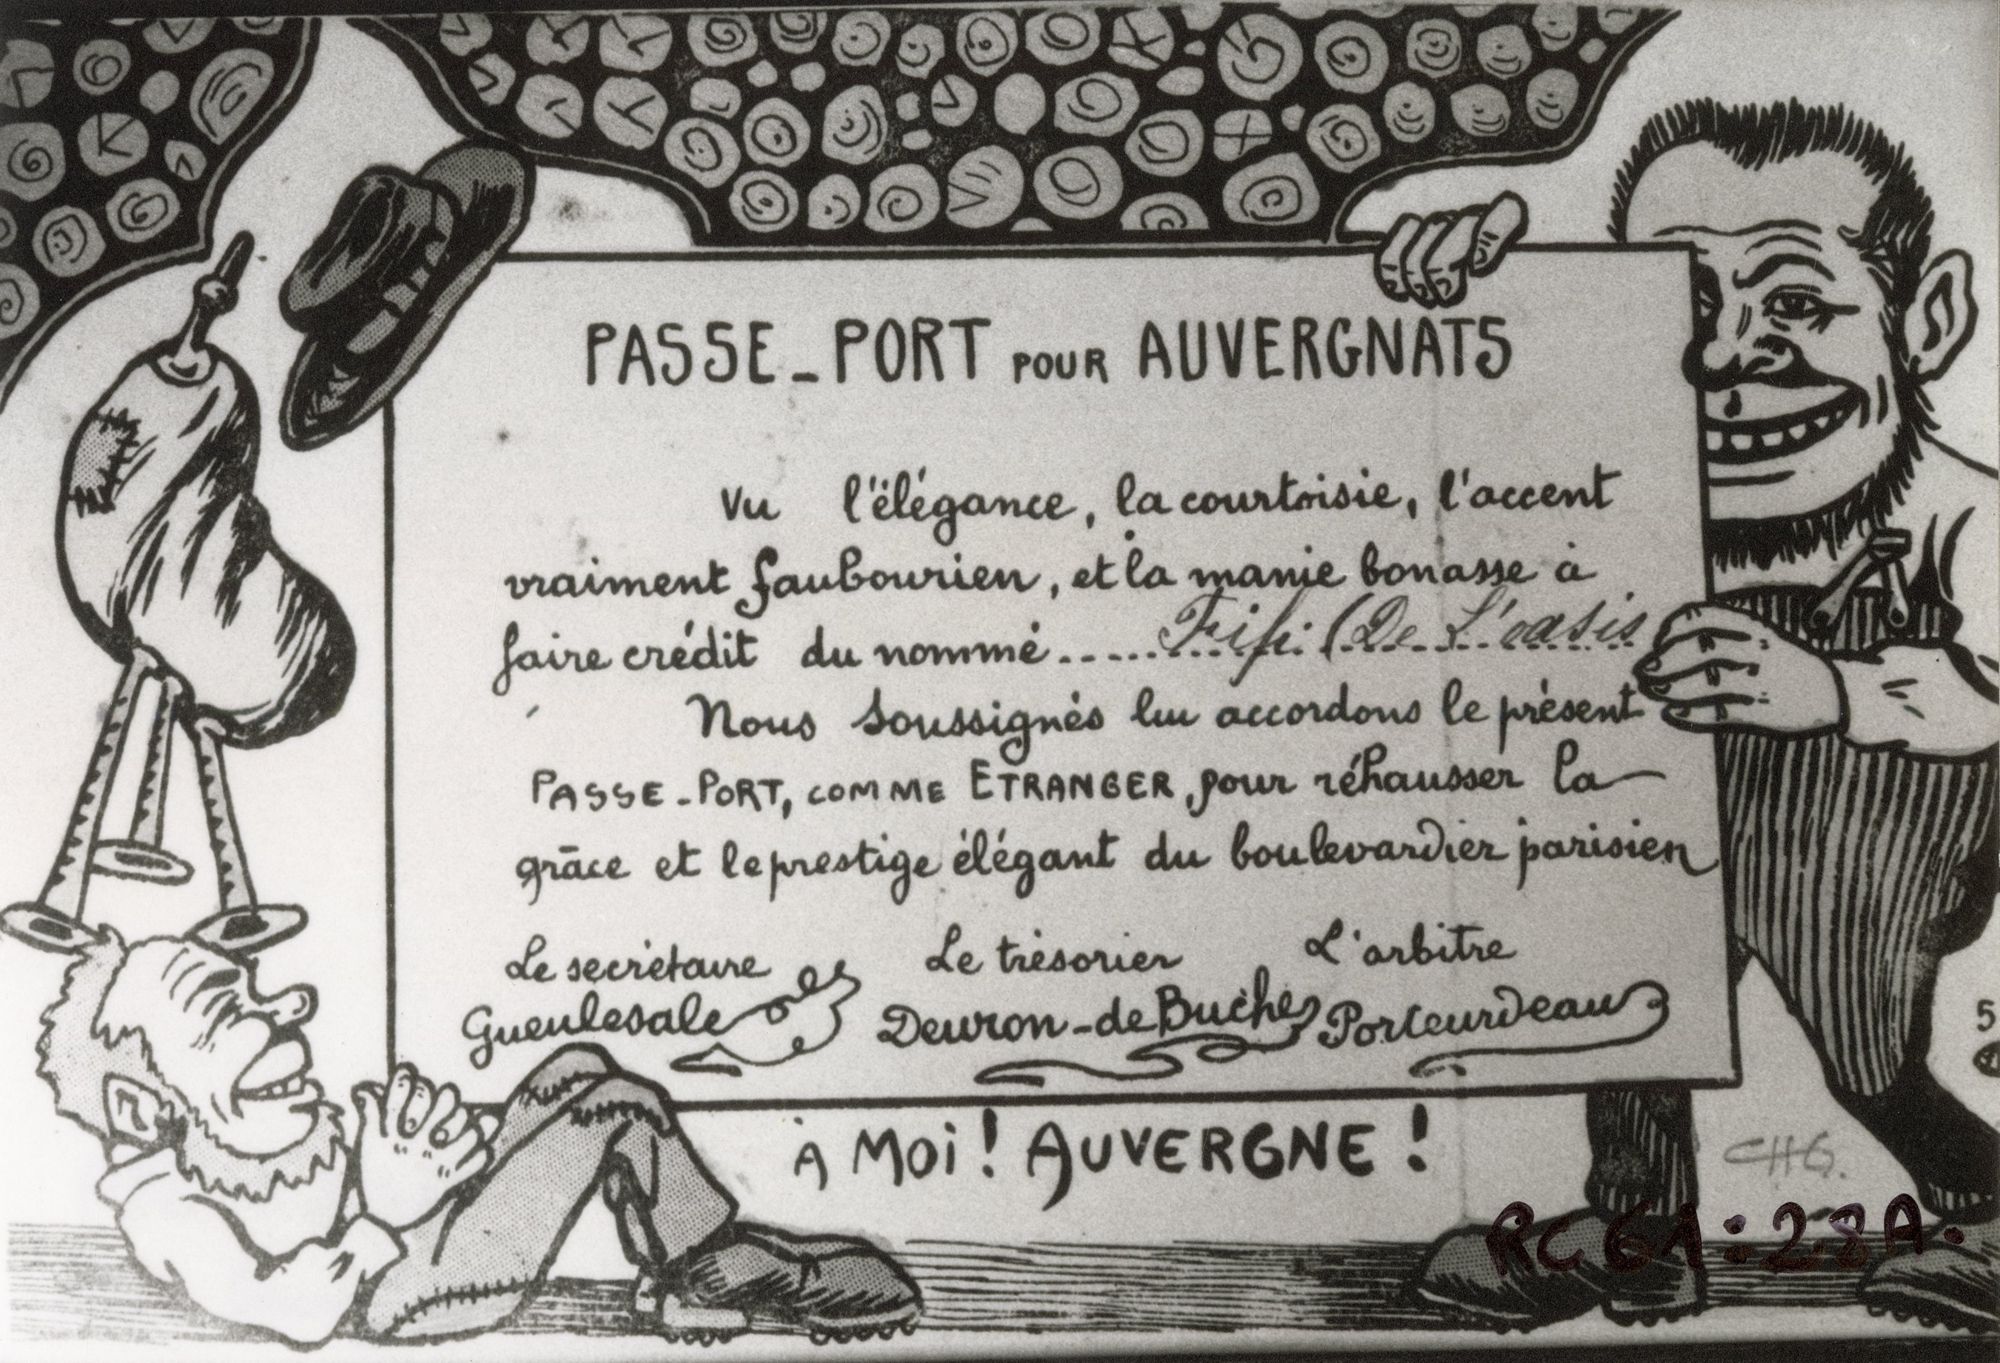 PASSE-PORT POUR AUVERGNATS
Vu l'élégance, la courtoisie, l'accent
vraiment faubourien, et la manie bonasse à
faire crédit du nommé..... Fifi (De L'oasis
Nous soussignés lui accordons le présent
PASSE-PORT, COMME ETRANGER, pour réhausser la
grâce et le prestige élégant du boulevardier parisien
Le secrétaire Le trésorier L'arbitre
Gueulesale Deuron-de Buche Porteurdeau
À MOI! AUVERGNE!
5
CHG.
RC61:28A.